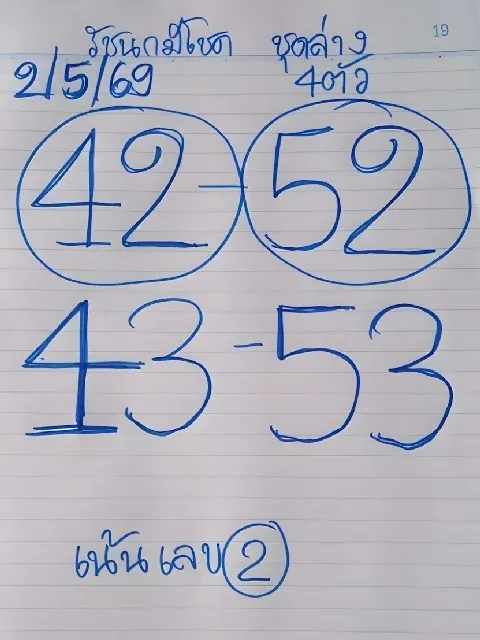 19
รัชนกมีโชค ชุดล่าง
2/5/69 4ตัว
42 - 52
43 - 53
เน้นเลข 2